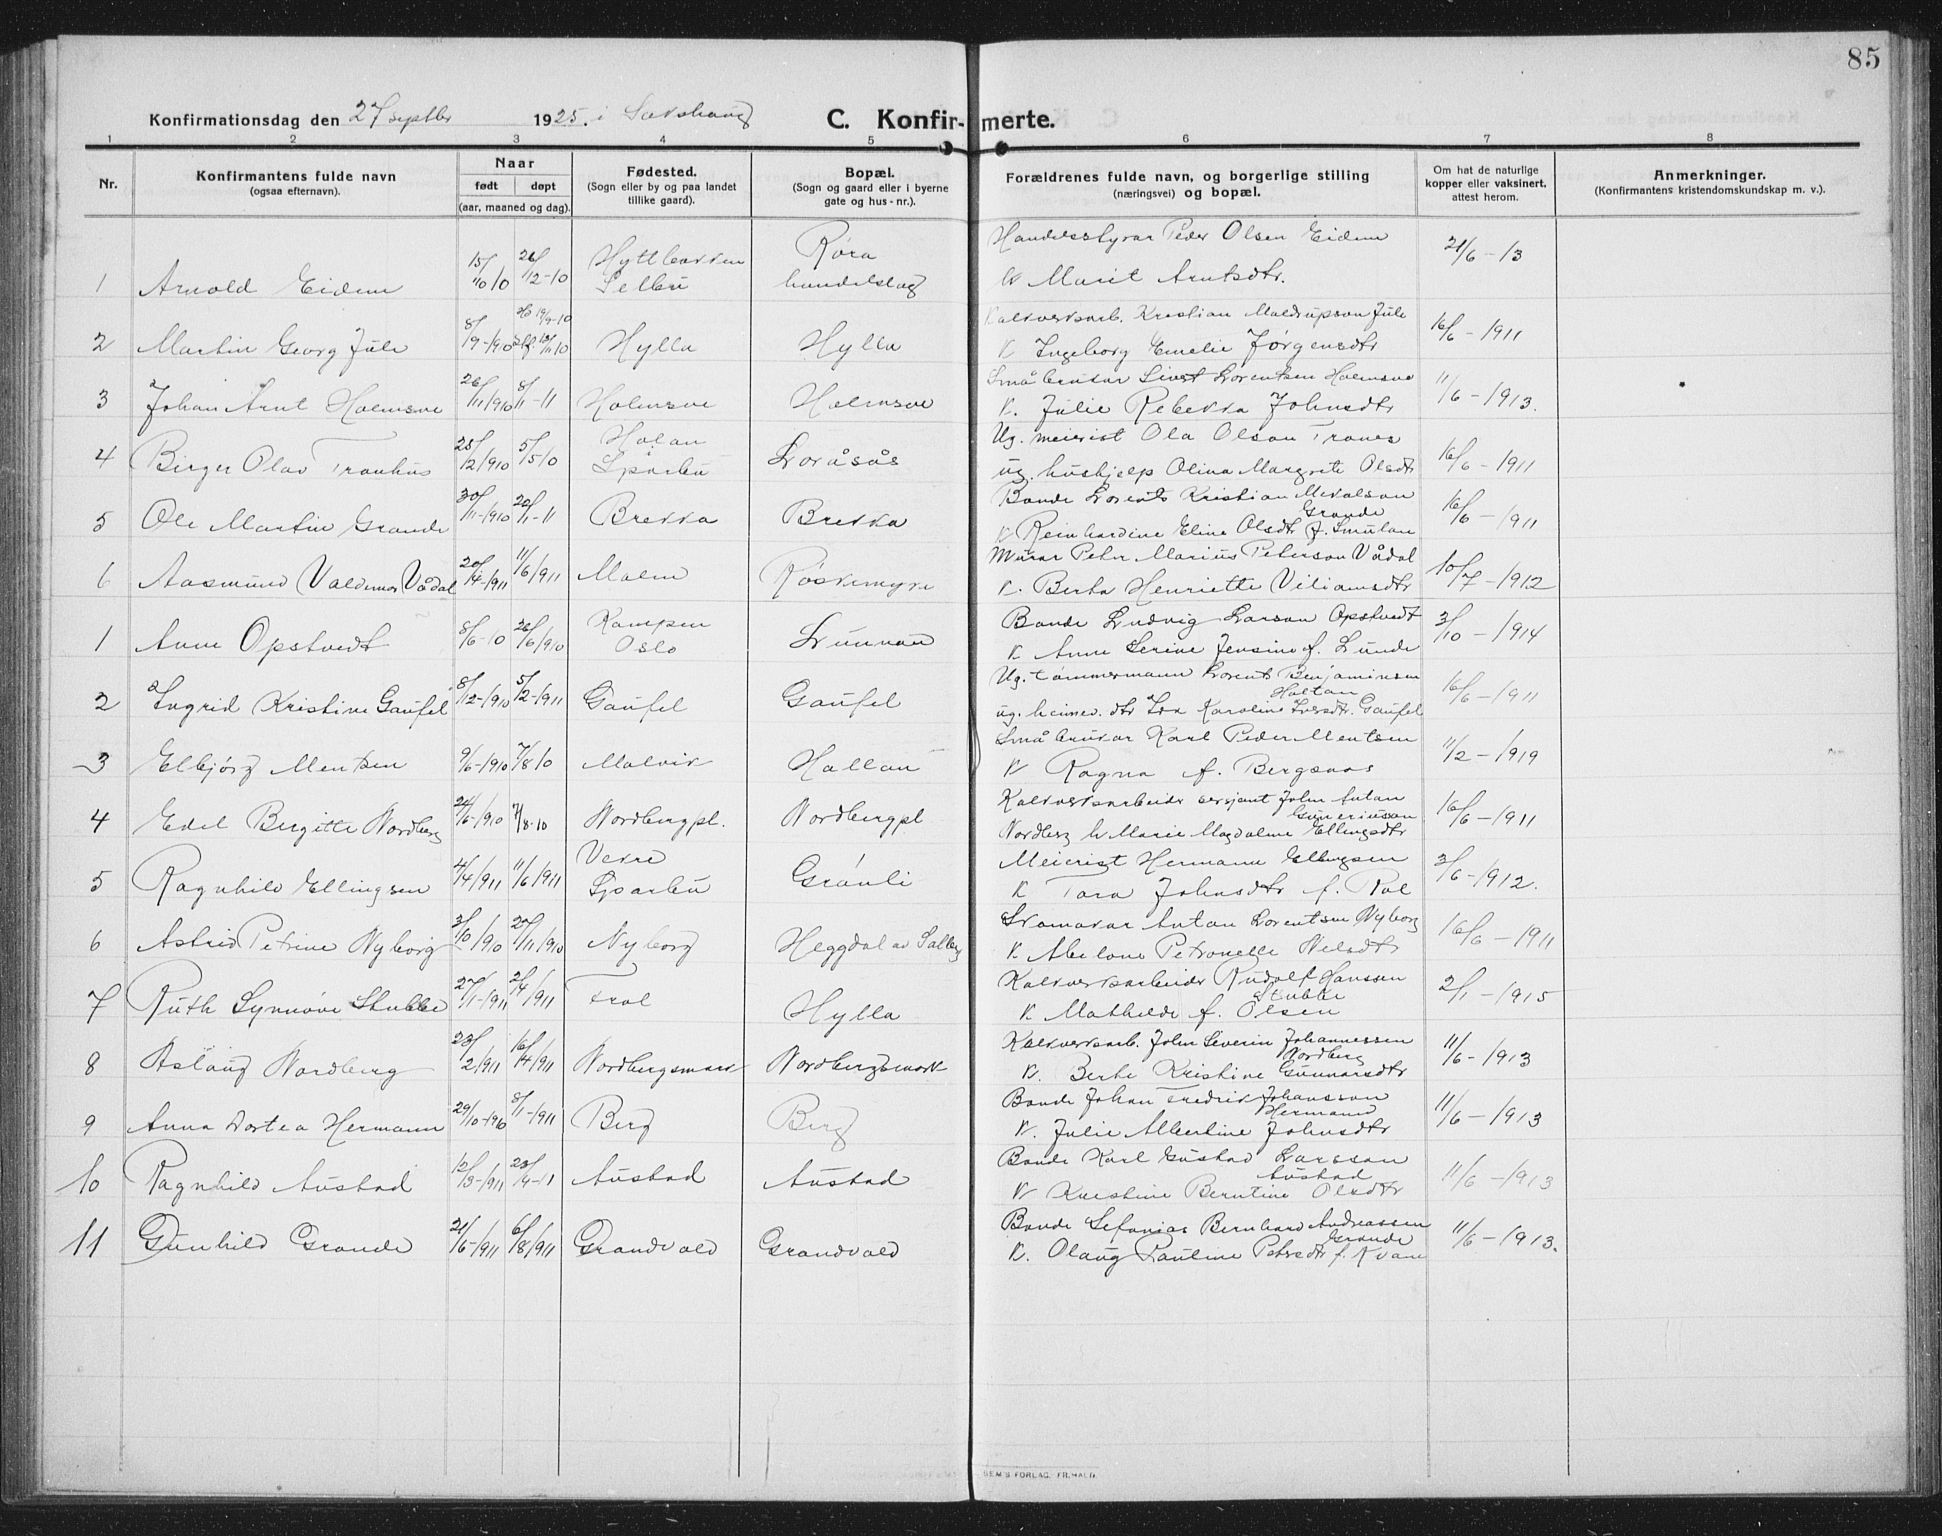 85
Konfirmationsdag den 27 septbr 1925. i Sakshaug C. Konfirmerte.
1 2 3 4 5 6 7 8
Nr.
Konfirmantens fulde navn
(ogsaa efternavn).
Naar
født døpt
(aar, maaned og dag).
Fødested.
(Sogn eller by og paa landet
tillike gaard).
Bopæl.
(Sogn og gaard eller i byerne
gate og hus-nr.).
Forældrenes fulde navn, og borgerlige stilling
(næringsvei) og bopæl.
Om hat de naturlige
kopper eller vaksinert,
attest herom.
Anmerkninger.
(Konfirmantens kristendomskundskap m. v.).
Handelsstyrar Peder Olsen Eidem
1 Arnold Eidem 15/10 10 26/12-10 Hyttbakken Selbu Røra handelslag k Marit Arntsdtr. 21/6-13
Kalkverksarb. Kristian Maldrupson Jule
2 Martin Georg Jule 8/9-1910 Hylla Hylla k Ingeborg Emelie Jørgensdtr 16/6-1911
Småbrukar Sivert Lorentsen Holmsve
3 Johan Arnt Holmsve 26/11 1910 8/1-11 Holmsve Holmsve k. Julie Rebekka Johnsdtr 11/6-1913.
Ug. meierist Ola Olson Tranes
4 Birger Olav Tranhus 25/12 1910 5/5 10 Holan Sparbu Loråsås ug. hushjelp Olina Margrete Olsdtr 16/6-1911
Bonde Lorents Kristian Mekalson Grande
5 Ole Martin Grande 30/11-1910 22/1-11 Brekka Brekka k Reinhardine Eline Olsdtr f. Smulan 16/6-1911
Murar Peter Marius Peterson Vådal
6 Aasmund Valdemar Vådal 20/4-1911 11/6 1911 Malm Røskemyra k. Berta Henriette Viliamsdtr 10/7-1912
Bonde Ludvig Larson Opstvedt
1 Anne Opstvedt 8/6-10 26/6 1910 Kampen Oslo Lunnan k Anne Serine Jensine f. Lunde 3/10-1914
Ug. tømmermann Lorents Benjaminsen Holtan
2 Ingrid Kristine Gaufel 8/12-1910 5/2-1911 Gaufel Gaufel ug. heimev. dtr Ida Karoline Iversdtr. Gaufel 16/6-1911
Småbrukar Karl Peder Mentsen
3 Elbjørg Mentsen 9/6-1910 7/8 10 Malvik Hallan k Ragna f. Bergsaas 11/2-1919
Kalkverksarbeider sersjant John Antan Guneriusson
4 Edel Birgitte Nordberg 24/6-1910 7/8-10 Nordbergpl. Nordbergpl Nordberg k Marie Magdalene Ellingsdtr 16/6-1911
Meierist Hermann Ellingsen
5 Ragnhild Ellingsen 4/4 1911 11/6 1911 Vekre Sparbu Grønli k Tora Johnsdtr f. Rol 3/6-1912.
Skomakar Antan Lorentsen Nyborg
6 Astrid Petrine Nyborg 3/10 1910 27/11 1910 Nyborg Heggdal av Salberg k Abelone Petronelle Nelsdtr 16/6-1911
Kalkverksarbeider Rudolf Hanssen Stubbe
7 Ruth Synnøve Stubbe 27/1-1911 2/4 1911 Frol Hylla k Mathilde f. Olsen 2/1-1915
Kalkverksarb. John Severin Johannessen Nordberg
8 Aslaug Nordberg 23/2 1911 16/4 1911 Nordbergsmark Nordbergsmark k. Berte Kristine Gunnarsdtr 11/6-1913
Bonde Johan Fredrik Johansson Hermann
9 Anna Dortea Hermann 29/10-1910 8/1-1911 Berg Berg k. Julie Albertine Johnsdtr 11/6-1913
Bonde Karl Gustad Larsson Austad
10 Ragnhild Austad 12/3-1911 23/4-11 Austad Austad k Kristine Berntine Olsdtr 11/6-1913
Bonde Sefanias Bernhard Andreassen Grande
11 Gunhild Grande 21/6-1911 6/8 1911 Grandvald Grandvald k. Olaug Pauline Petersdtr f. Kvam 11/6-1913.
SEM'S FORLAG, FR.HALD.